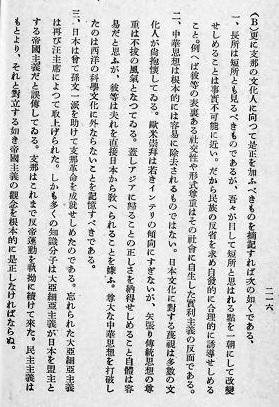 二一六
(B)更に支那の文化人に向つて是正を加ふべきものを摘記すれば次の如くである。
一、長所は短所とも見るべきものであるが、吾々が目して短所と思はれる點を一朝にして改變
せしめることは事實不可能に近い。だから民族の反省を求め自發的に合理的に誘導せしめる
こと。例へば彼等の表裏ある社交性や形式尊重はその社會に自生した實利主義の反面である。
二、中華思想は根本的には容易に除去されるものではない。日本文化に對する蔑視は多數の文
化人が尙抱懷してゐる。歐米崇拜は若きインテリの傾向にすぎないが、矢張り傳統思想の尊
重は不拔の風氣となつてゐる。蓋しアジアに歸ることの正しさを納得せしめること自體は容
易だと思ふが、彼等は夫れを直接日本から敎へられることを嫌ふ。尊大な中華思想を打破し
たのは西洋の科學文化に外ならないことを記憶すべきである。
三、日本は曾て孫文一派を助けて支那革命を成就せしめたのである。忘れられた大亞細亞主義
は再び汪主席によつて取上げられた。しかも多くの知識分子は大亞細亞主義が日本を盟主と
する帝國主義だと誤傳してゐる。支那はこれまで反帝運動を執拗に續けて來た。民主主義は
もとより、それと對立する如き帝國主義の觀念を根本的に是正しなければならぬ。